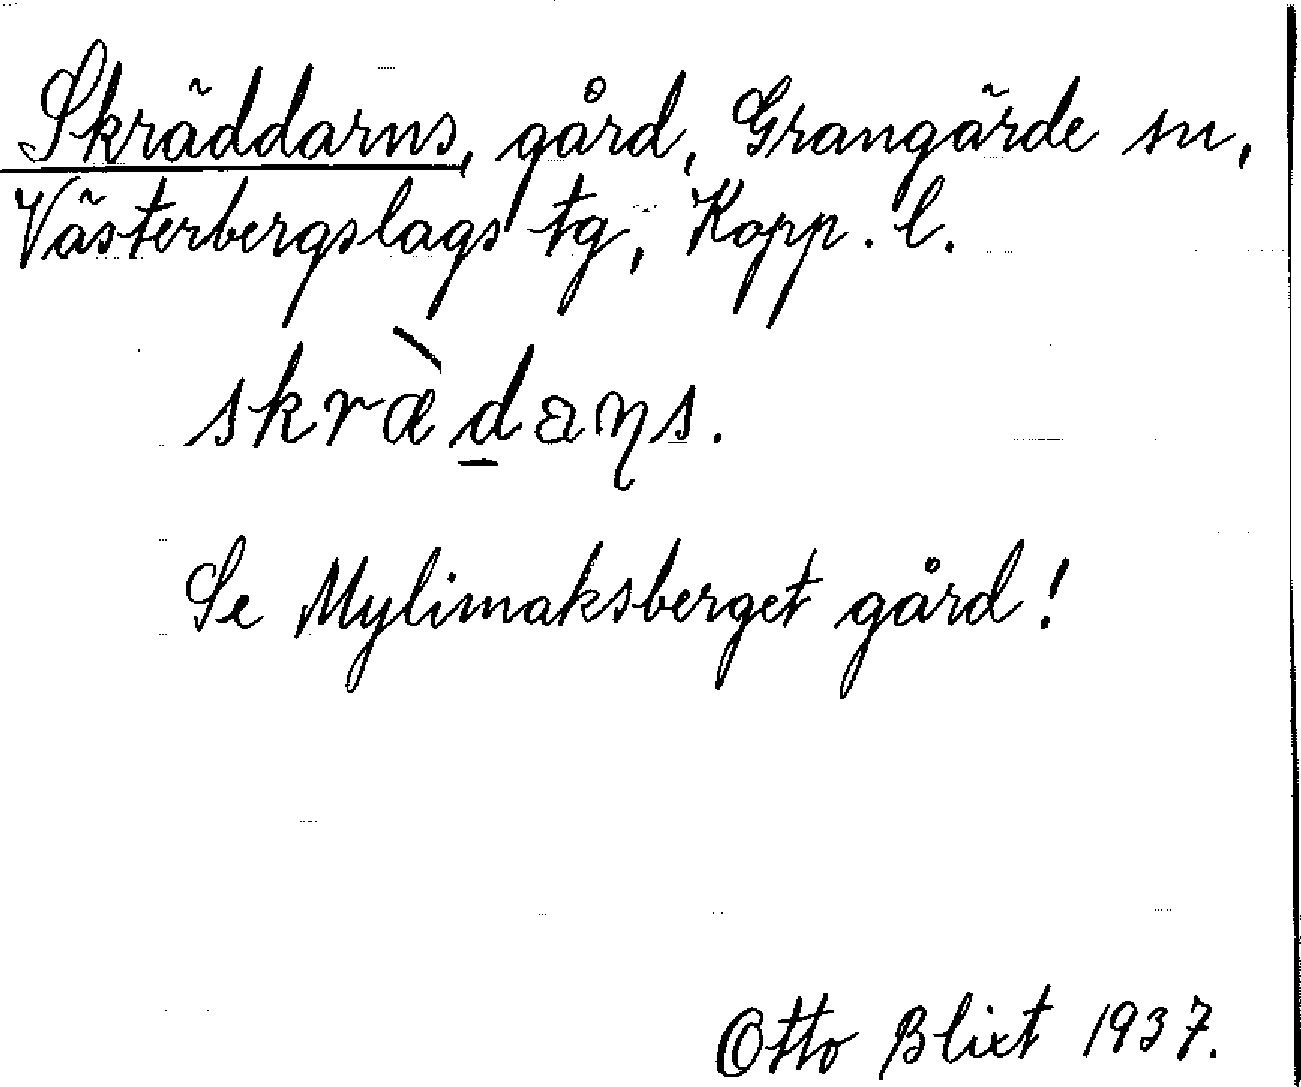 Skräddarns, gård, Grangärde sn,
Västerbergslags tg, Kopp. l.
skræ̀d̲aṇs.
Se Mylimaksberget gård!
Otto Blixt 1937.